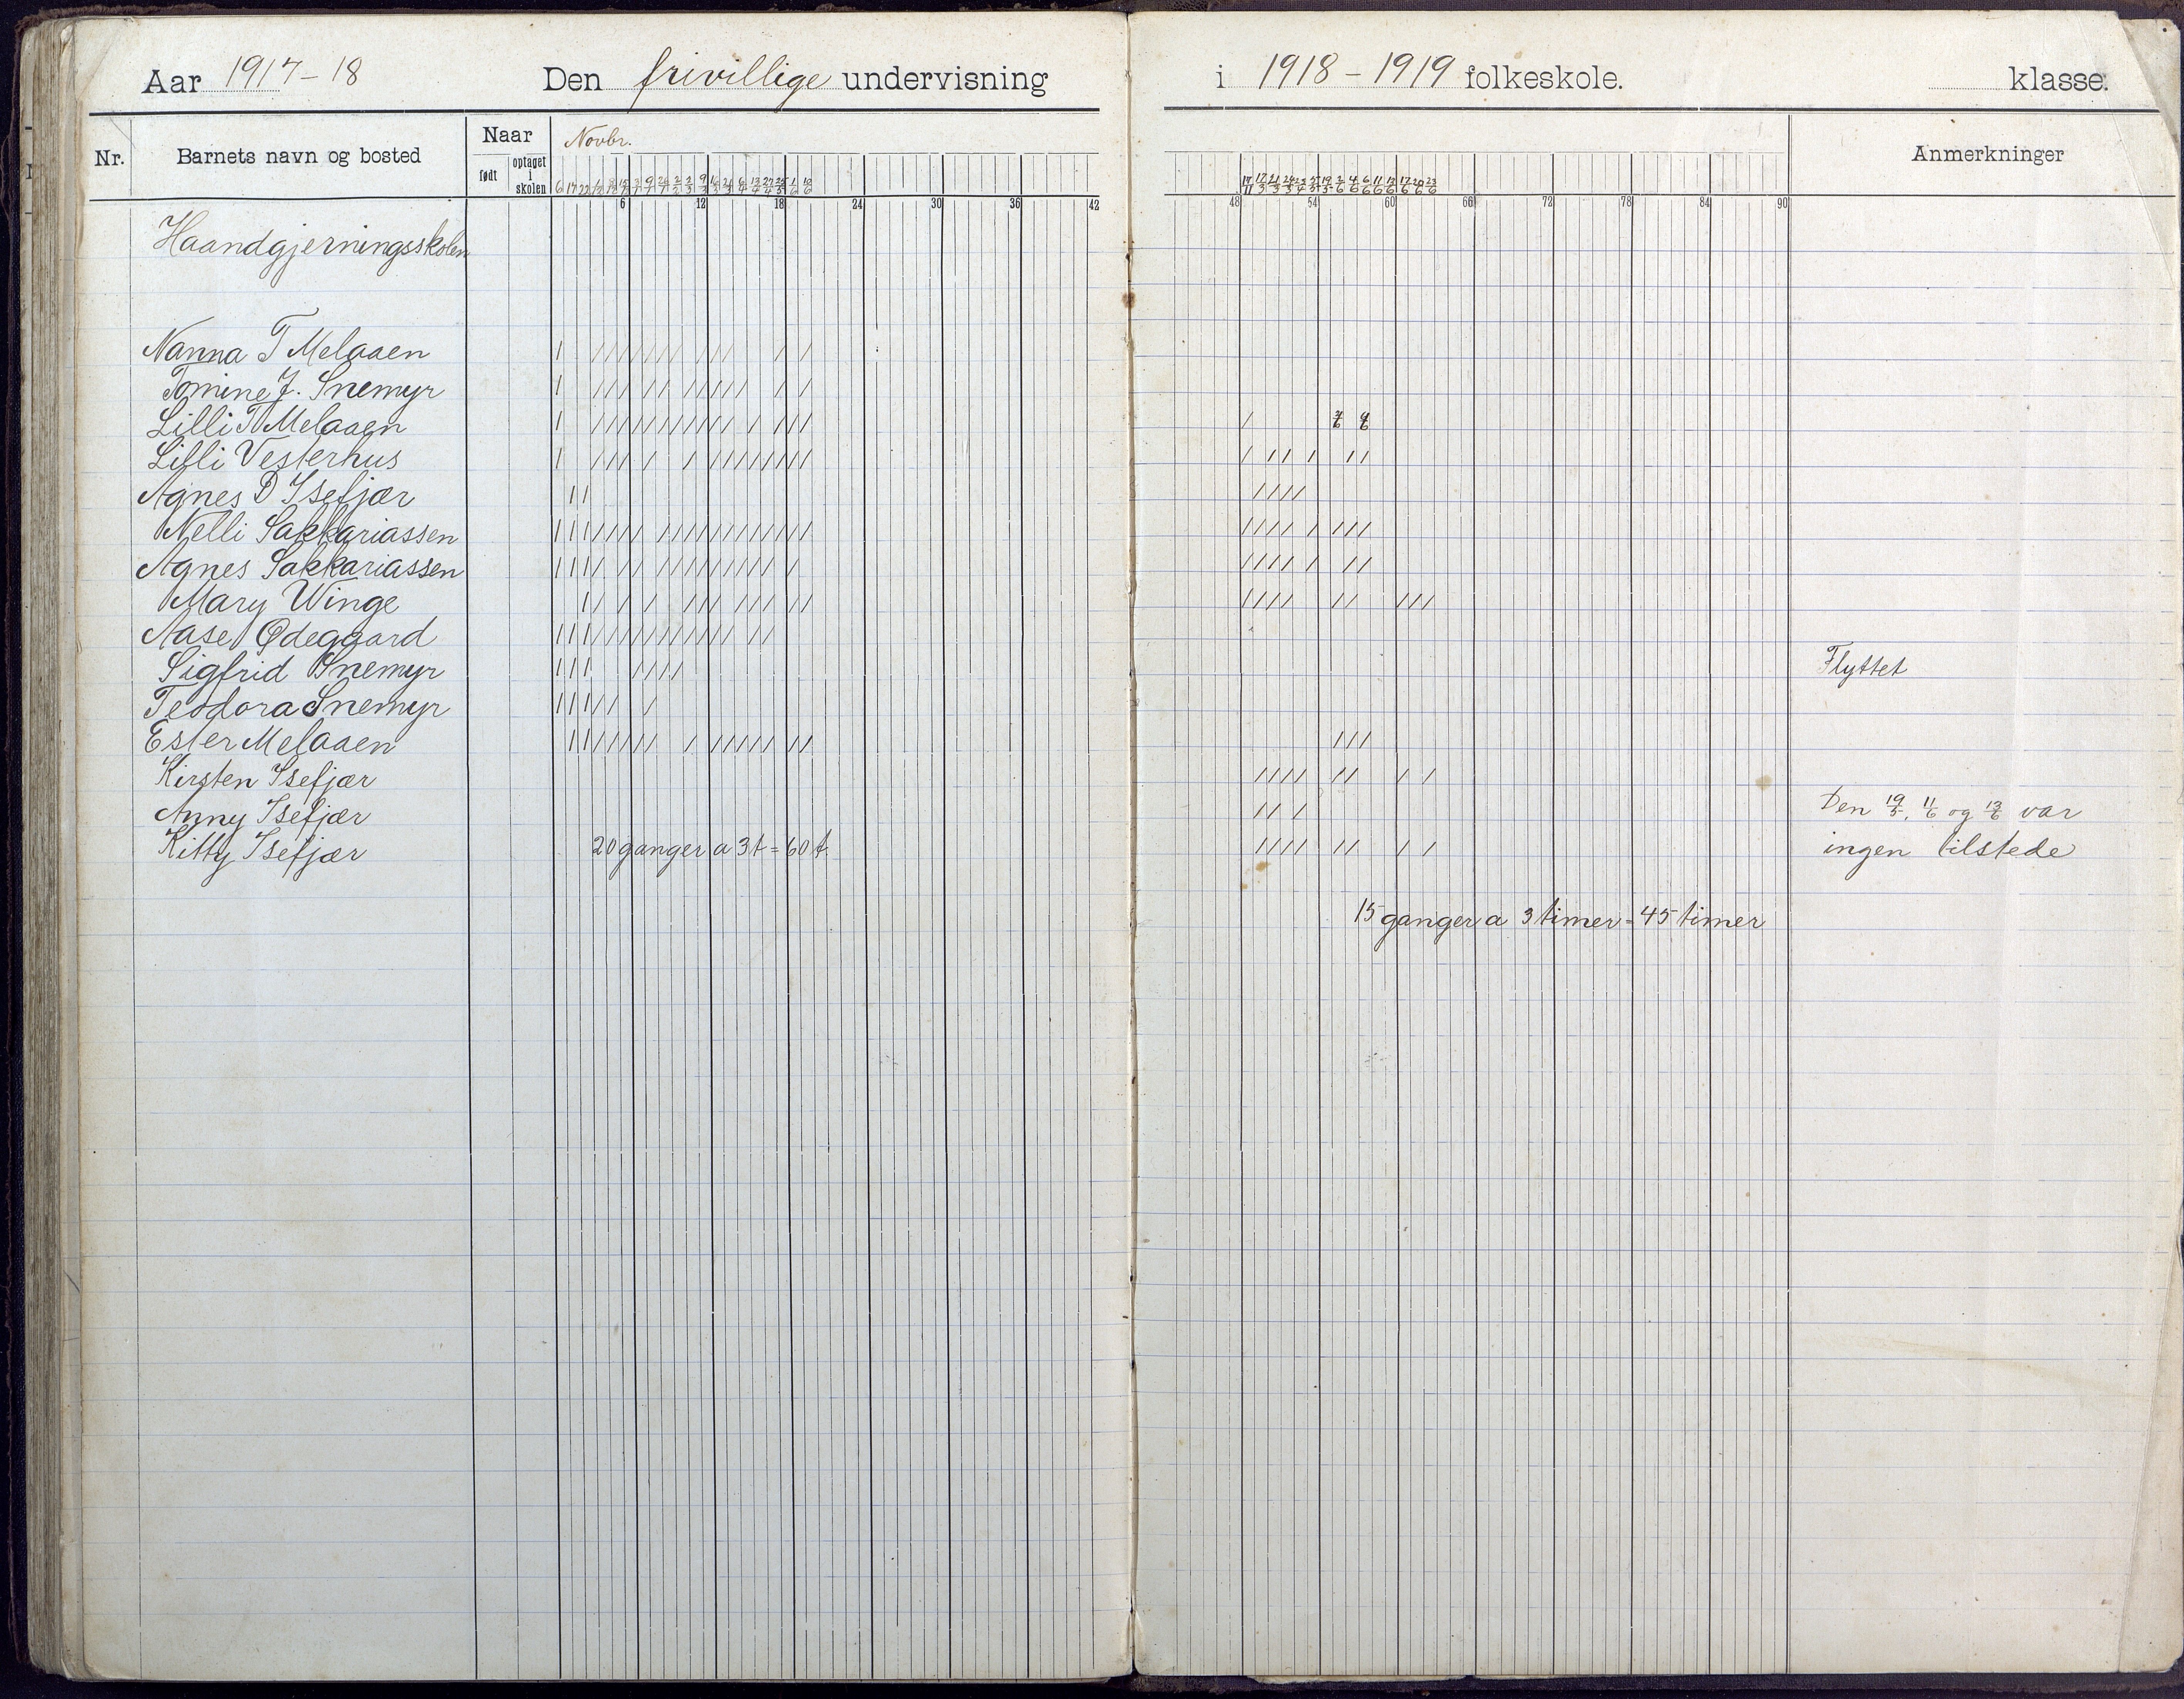 Aar 1917-18 Den frivillige undervisning i 1918-1919 folkeskole. klasse.
Nr. Barnets navn og bosted Naar født optaget i skolen Novbr. Anmerkninger
6 12 18 24 30 36 42 48 54 60 66 72 78 84 90
Haandgjerningsskolen
Nanna T Melaaen
Tomine J. Snemyr
Lilli T Melaaen
Lilli Vesterhus
Agnes D Isefjær
Nelli Sakkariassen
Agnes Sakkariassen
Mary Winge
Aase Ødegaard
Sigfrid Snemyr Flyttet
Teodora Snemyr
Ester Melaaen
Kirsten Isefjær
Anny Isefjær Den 19/5, 11/6 og 13/6 var
Kitty Isefjær 20 ganger a 3 t = 60 t. ingen tilstede
15 ganger a 3 timer = 45 timer